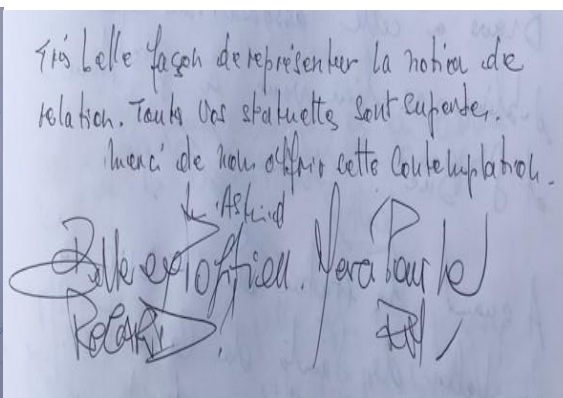 Très belle façon de représenter la notion de
relation. Toutes vos statuettes sont superbes.
Merci de nous offrir cette contemplation.
Astrid
Belle